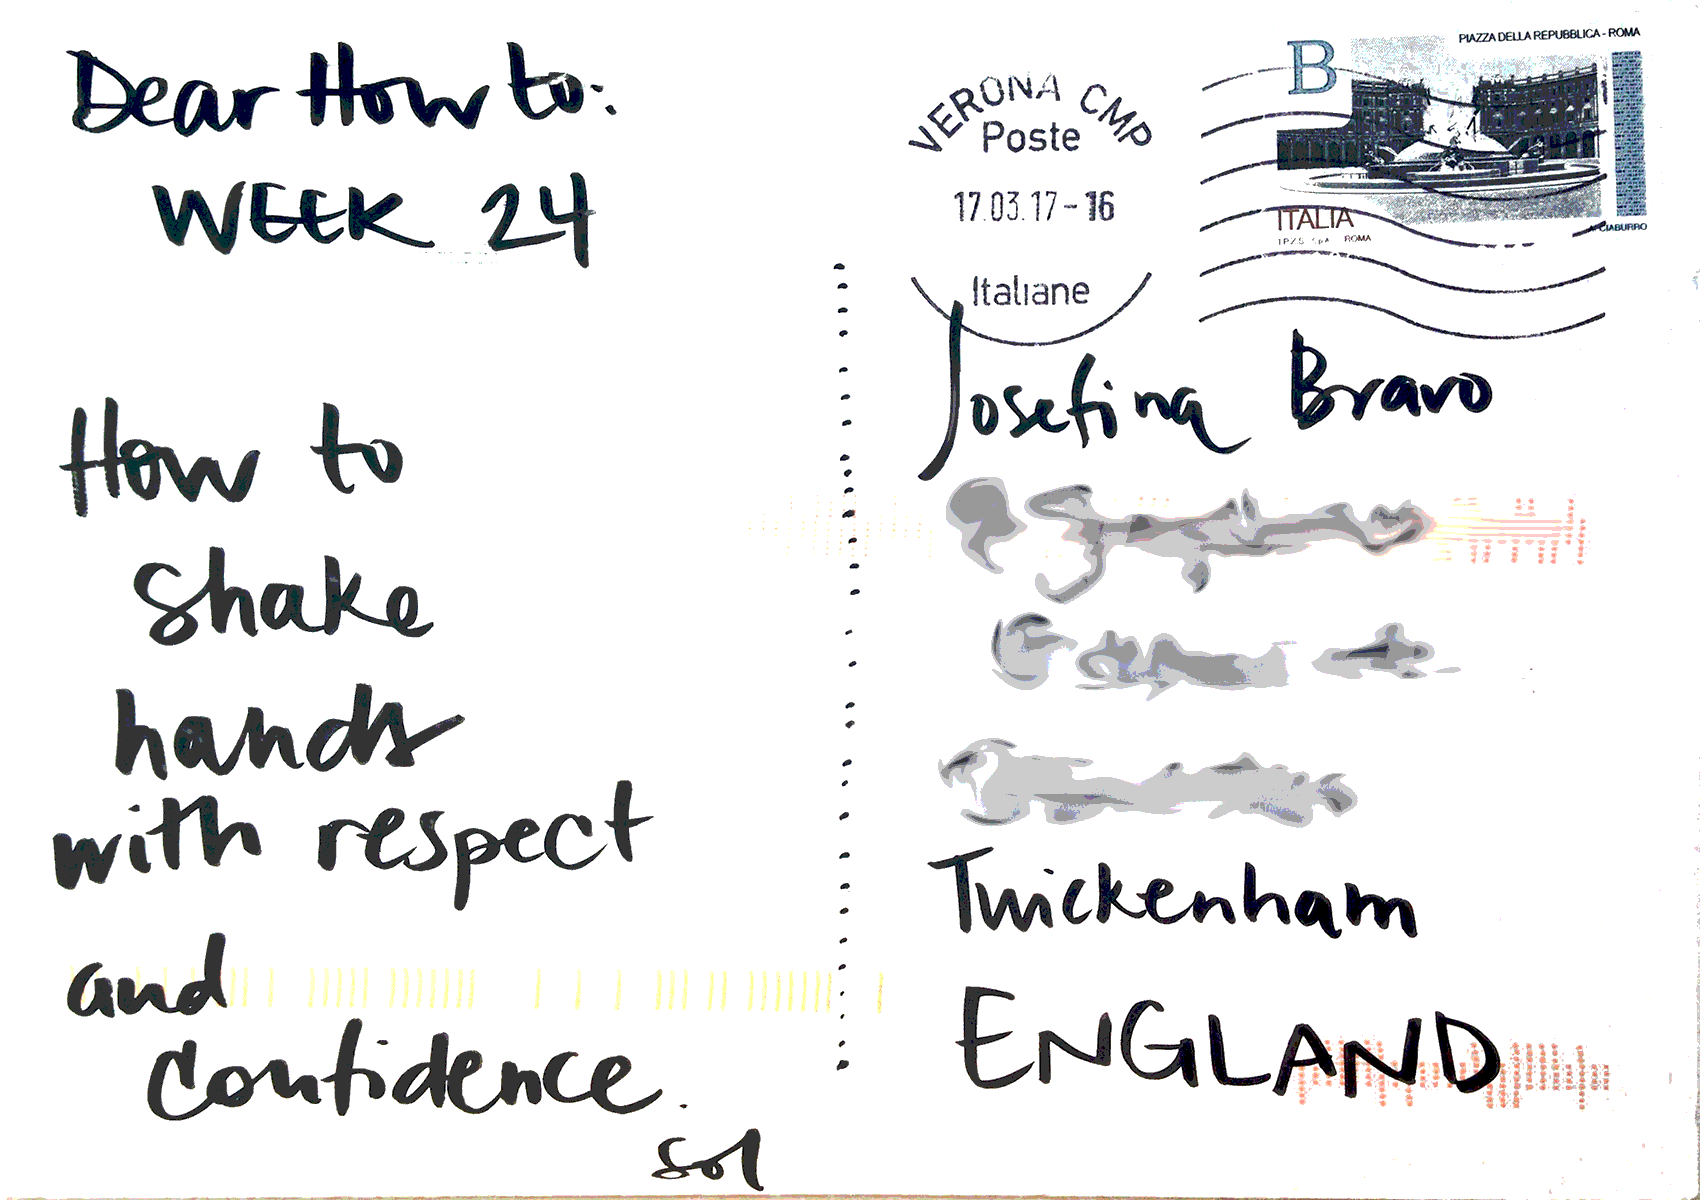 Dear How to:
WEEK 24
How to
shake
hands
with respect
and
confidence.
sol
VERONA CMP
Poste
17.03.17-16
Italiane
B
PIAZZA DELLA REPUBBLICA - ROMA
ITALIA
I.P.Z.S. S.p.A. ROMA
A. CIABURRO
Josefina Bravo
Twickenham
ENGLAND